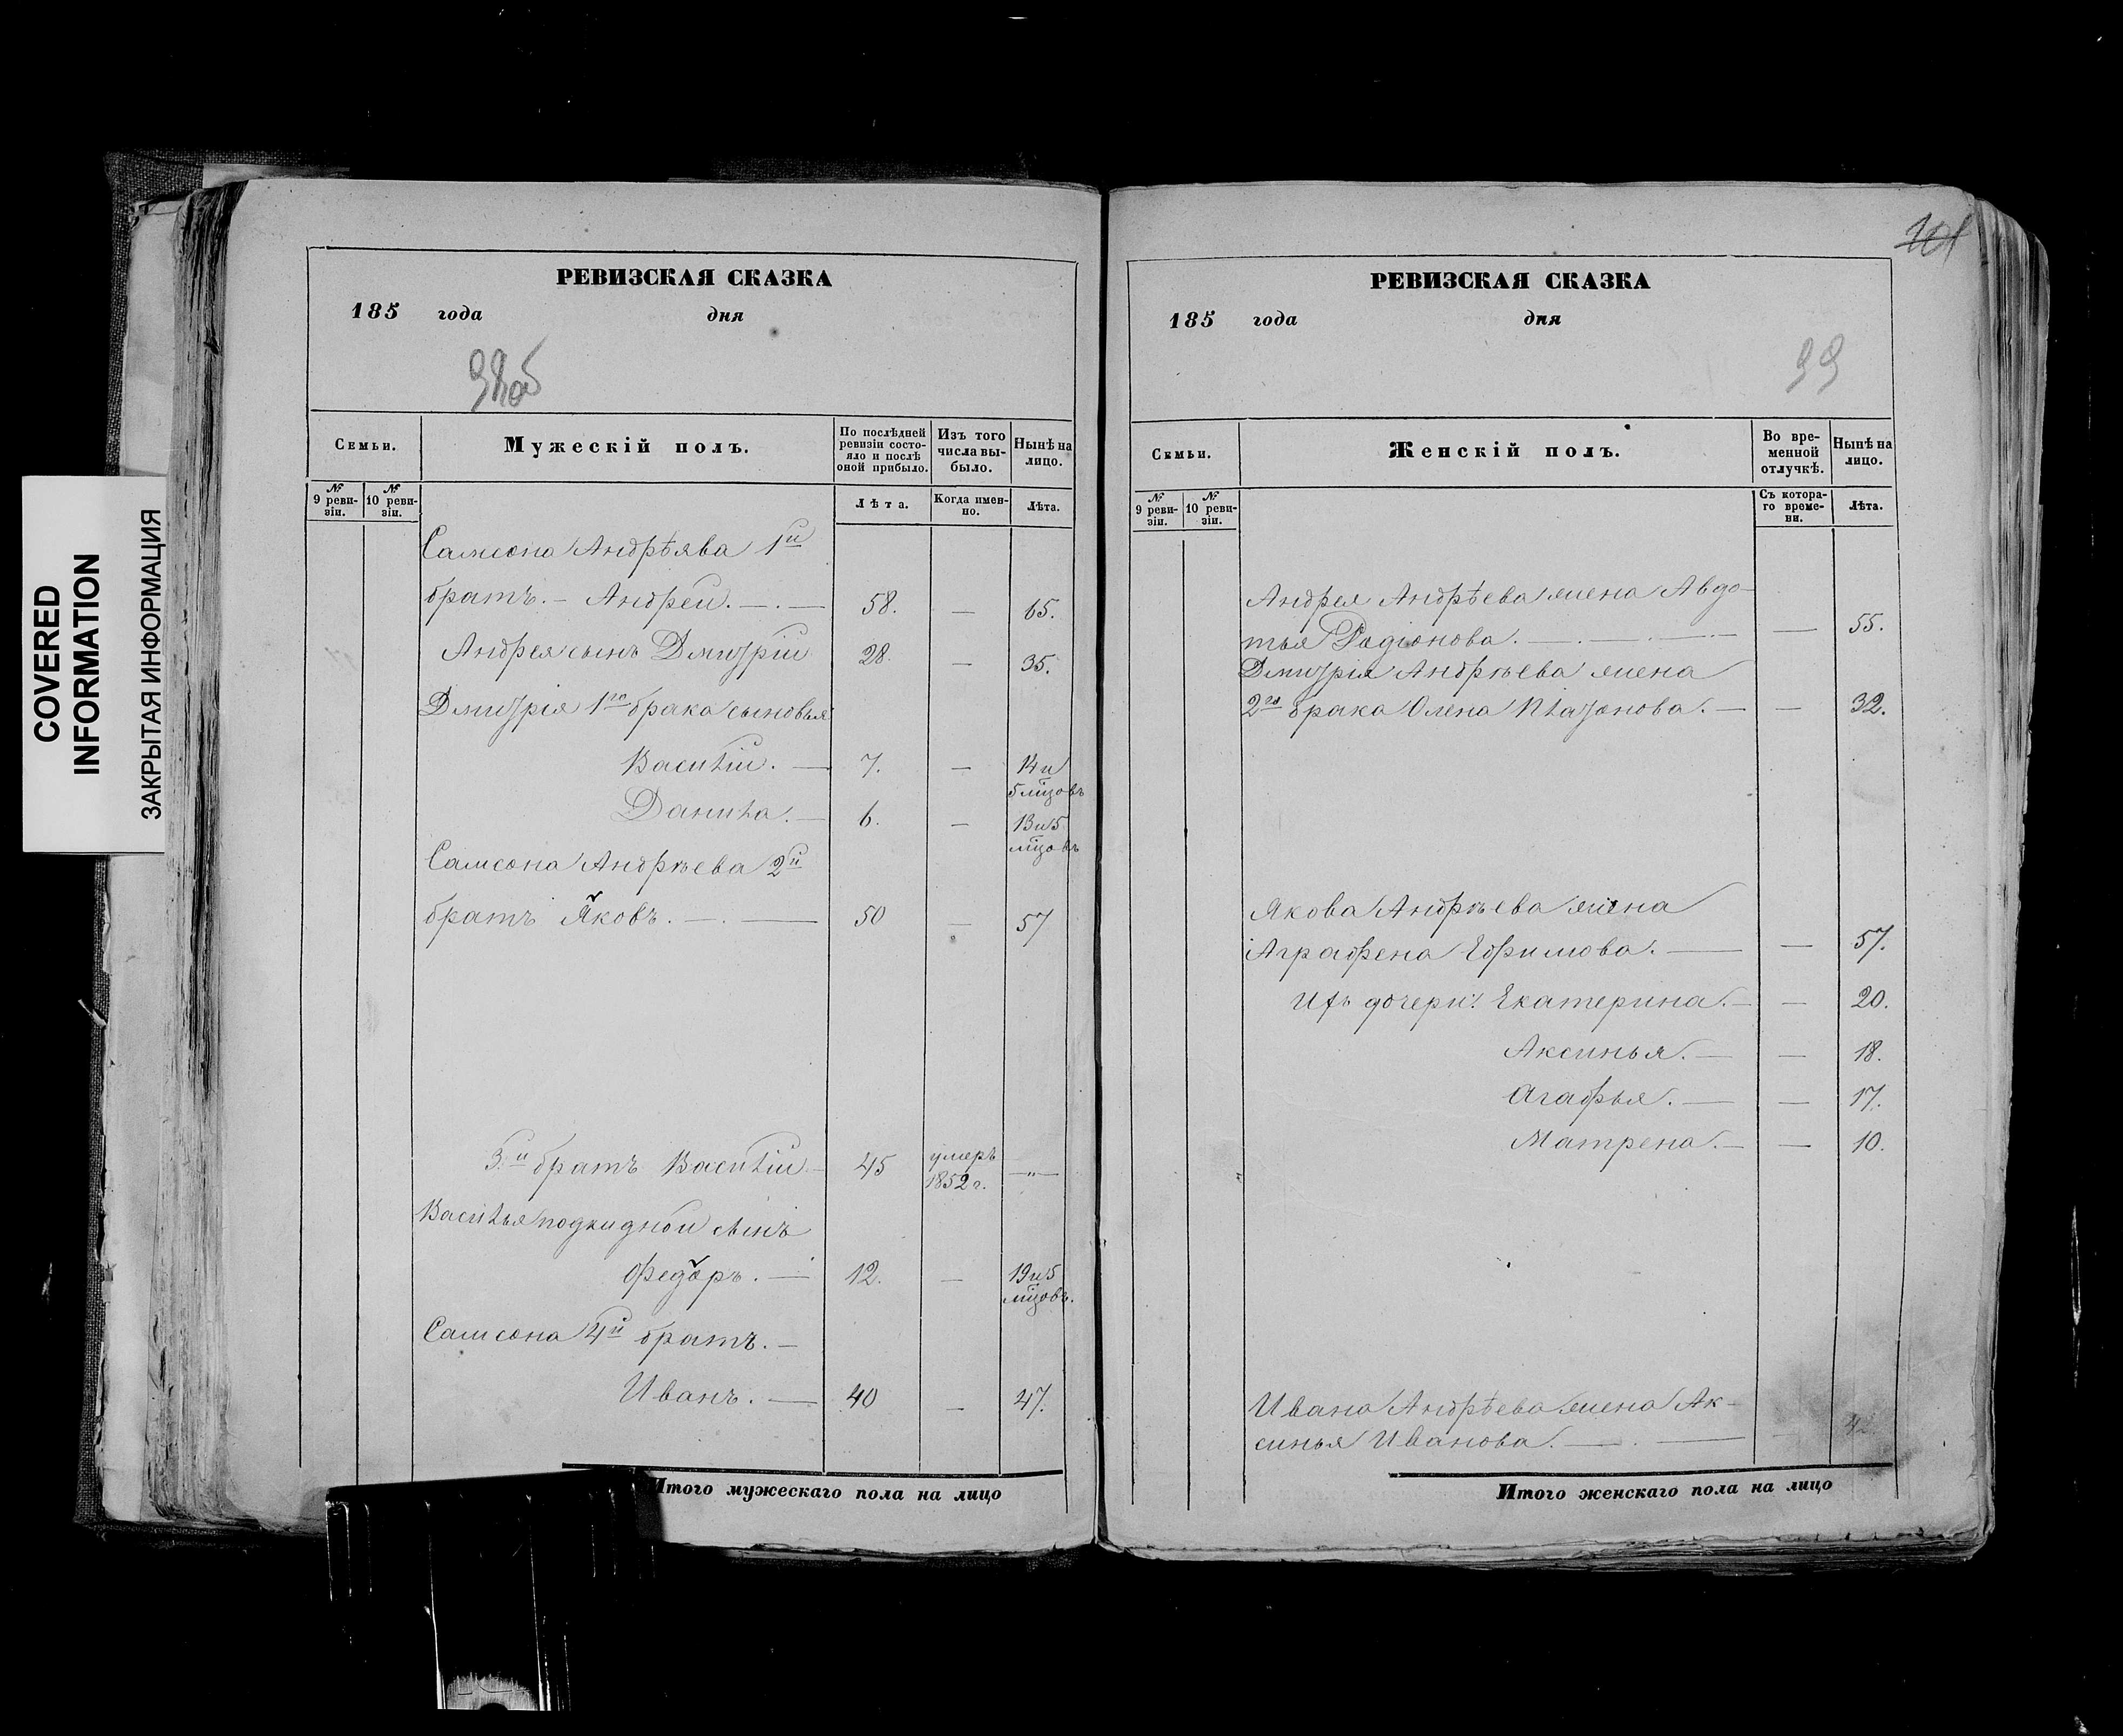 COVERED
INFORMATION
ЗАКРЫТАЯ ИНФОРМАЦИЯ
РЕВИЗСКАЯ СКАЗКА
185 года дня
98об
Семьи.
Мужескій полъ.
По послѣдней
ревизіи состо-
яло и послѣ
оной прибыло.
Изъ того
числа вы-
было.
Нынѣ на
лицо.
№
9 реви-
зіи.
№
10 реви-
зіи.
Лѣта.
Когда имен-
но.
Лѣта.
Самсона Андрѣява 1й
братъ. - Андрей. — . — 58. — 65.
Андрея сынъ Дмитрій 28. — 35.
Дмитрія 1го брака сыновья
Василій. — 7. — 14 и
5 мцовъ
Данила. — 6. — 13 и 5
мцовъ
Самсона Андрѣева 2й
братъ Яковъ. — . — 50 — 57
3й братъ Василій — 45 умеръ — " —
1852 г.
Василья подкидной сынъ
Федоръ. — 12. — 19 и 5
мцовъ.
Самсона 4й братъ. —
Иванъ. — 40 — 47.
Итого мужескаго пола на лицо
101
РЕВИЗСКАЯ СКАЗКА
185 года дня
99
Семьи.
Женскій полъ.
Во вре-
менной
отлучкѣ.
Нынѣ на
лицо.
№
9 реви-
зіи.
№
10 реви-
зіи.
Съ котора-
го време-
ни.
Лѣта.
Андрея Андрѣева жена Авдо-
тья Радіонова. — . — . — — 55.
Дмитрія Андрѣева жена
2го брака Олена Платонова. — — 32.
Якова Андрѣева жена
Аграфена Ефимова. — — 57.
Ихъ дочери: Екатерина. — — 20.
Аксинья. — — 18.
Агафья. — — 17.
Матрена. — — 10.
Ивана Андрѣева жена Ак-
синья Иванова. — . — —
Итого женскаго пола на лицо